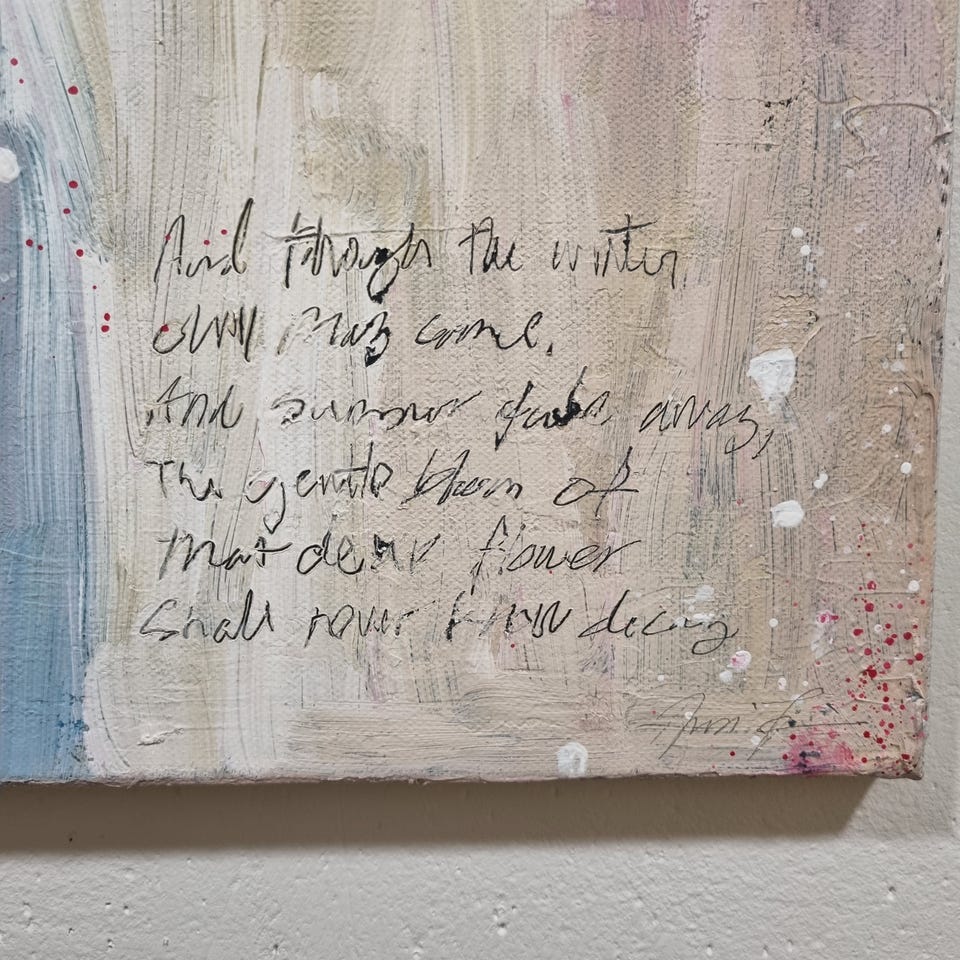 And though the winter
may come,
And summer fade away,
The gentle bloom of
that dear flower
Shall never know decay